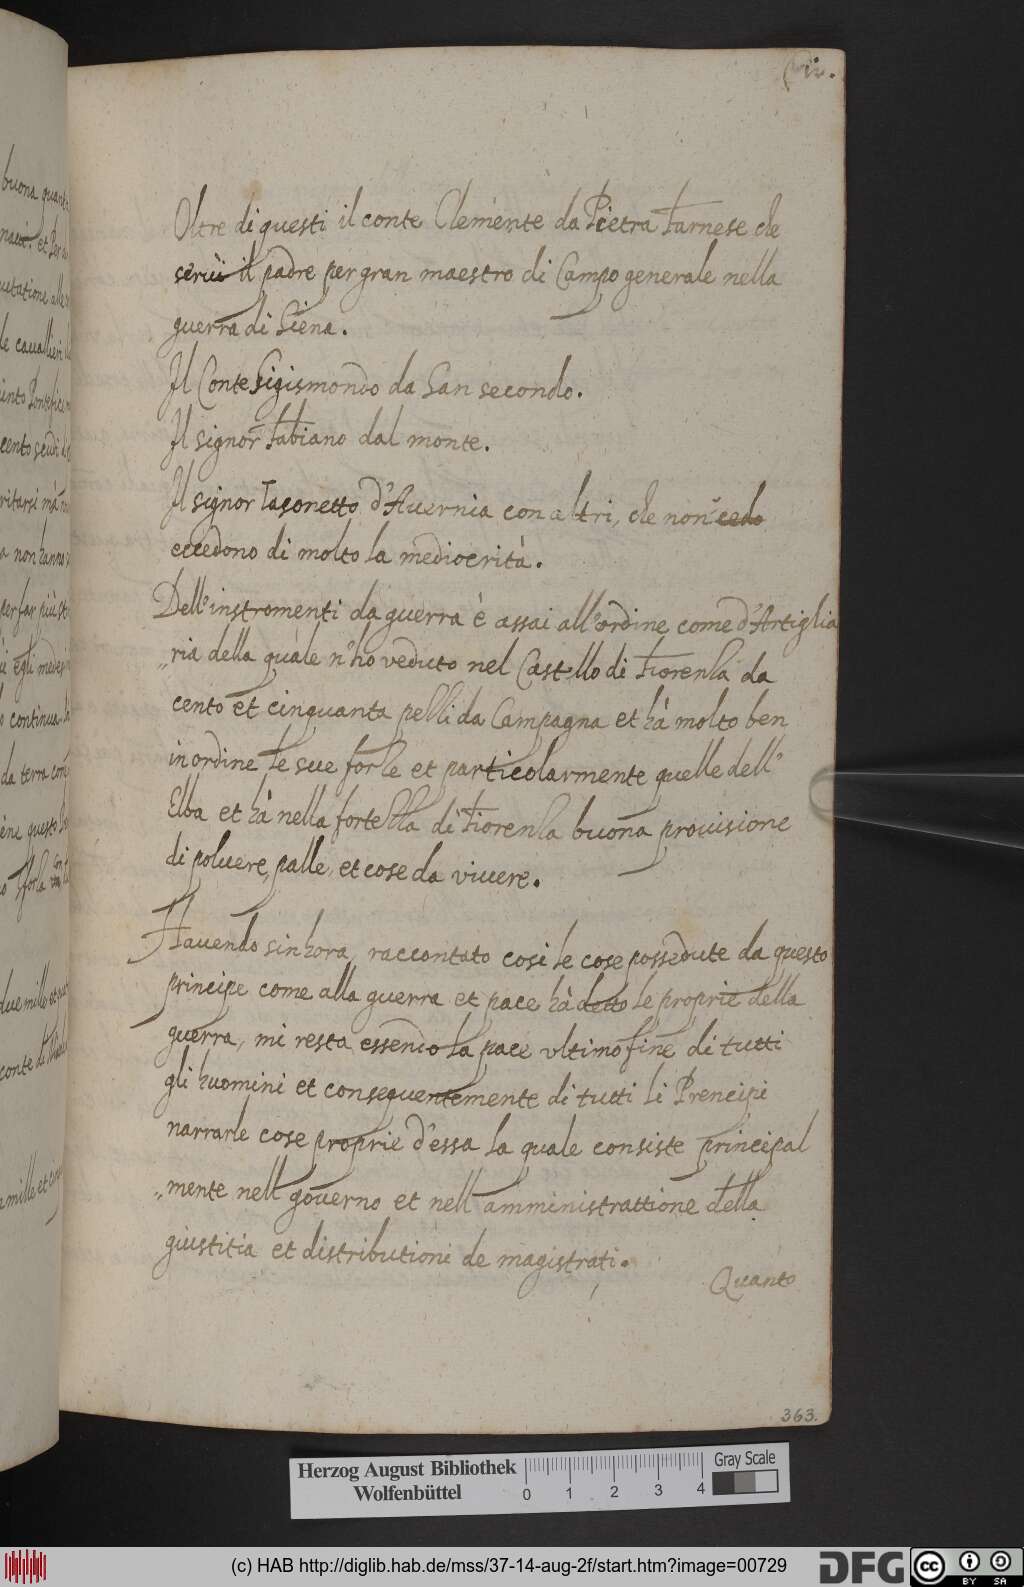 buona quanti
naui. et Per
putatione alle
le cauallieri
uinto Pontefice
cento scudi
ritarsi mà
a non hanno
per far più
egli medesi
continua
da terra con
ene questo
forza
due mille et
conte di
mille et
Oltre di questi il conte Clemente da Pietra Farnese che
seruì il padre per gran maestro di Campo generale nella
guerra di Siena.
Il Conte Sigismondo da San secondo.
Il signor Fabiano dal monte.
Il signor Iasonetto d'Auernia con altri, che non cedo
eccedono di molto la mediocrità.
Dell'instromenti da guerra è assai all'ordine come d'Artiglia
„ria della quale n'ho veduto nel Castello di Fiorenza da
cento et cinquanta pezzi da Campagna et hà molto ben
in ordine le sue forze et particolarmente quelle dell'
Elba et hà nella fortezza di Fiorenza buona prouisione
di poluere, palle, et cose da viuere.
Hauendo sinhora, raccontato cosi le cose possedute da questo
principe come alla guerra et pace hà detto le proprie della
guerra, mi resta essendo la pace vltimo fine di tutti
gli huomini et consequentemente di tutti li Prencipi
narrarle cose proprie d'essa la quale consiste principal
„mente nell gouerno et nell amministrattione della
giustitia et distributioni de magistrati.
Quanto
363.
Herzog August Bibliothek
Wolfenbüttel
0 1 2 3 4
Gray Scale
(c) HAB http://diglib.hab.de/mss/37-14-aug-2f/start.htm?image=00729
DFG
cc BY SA